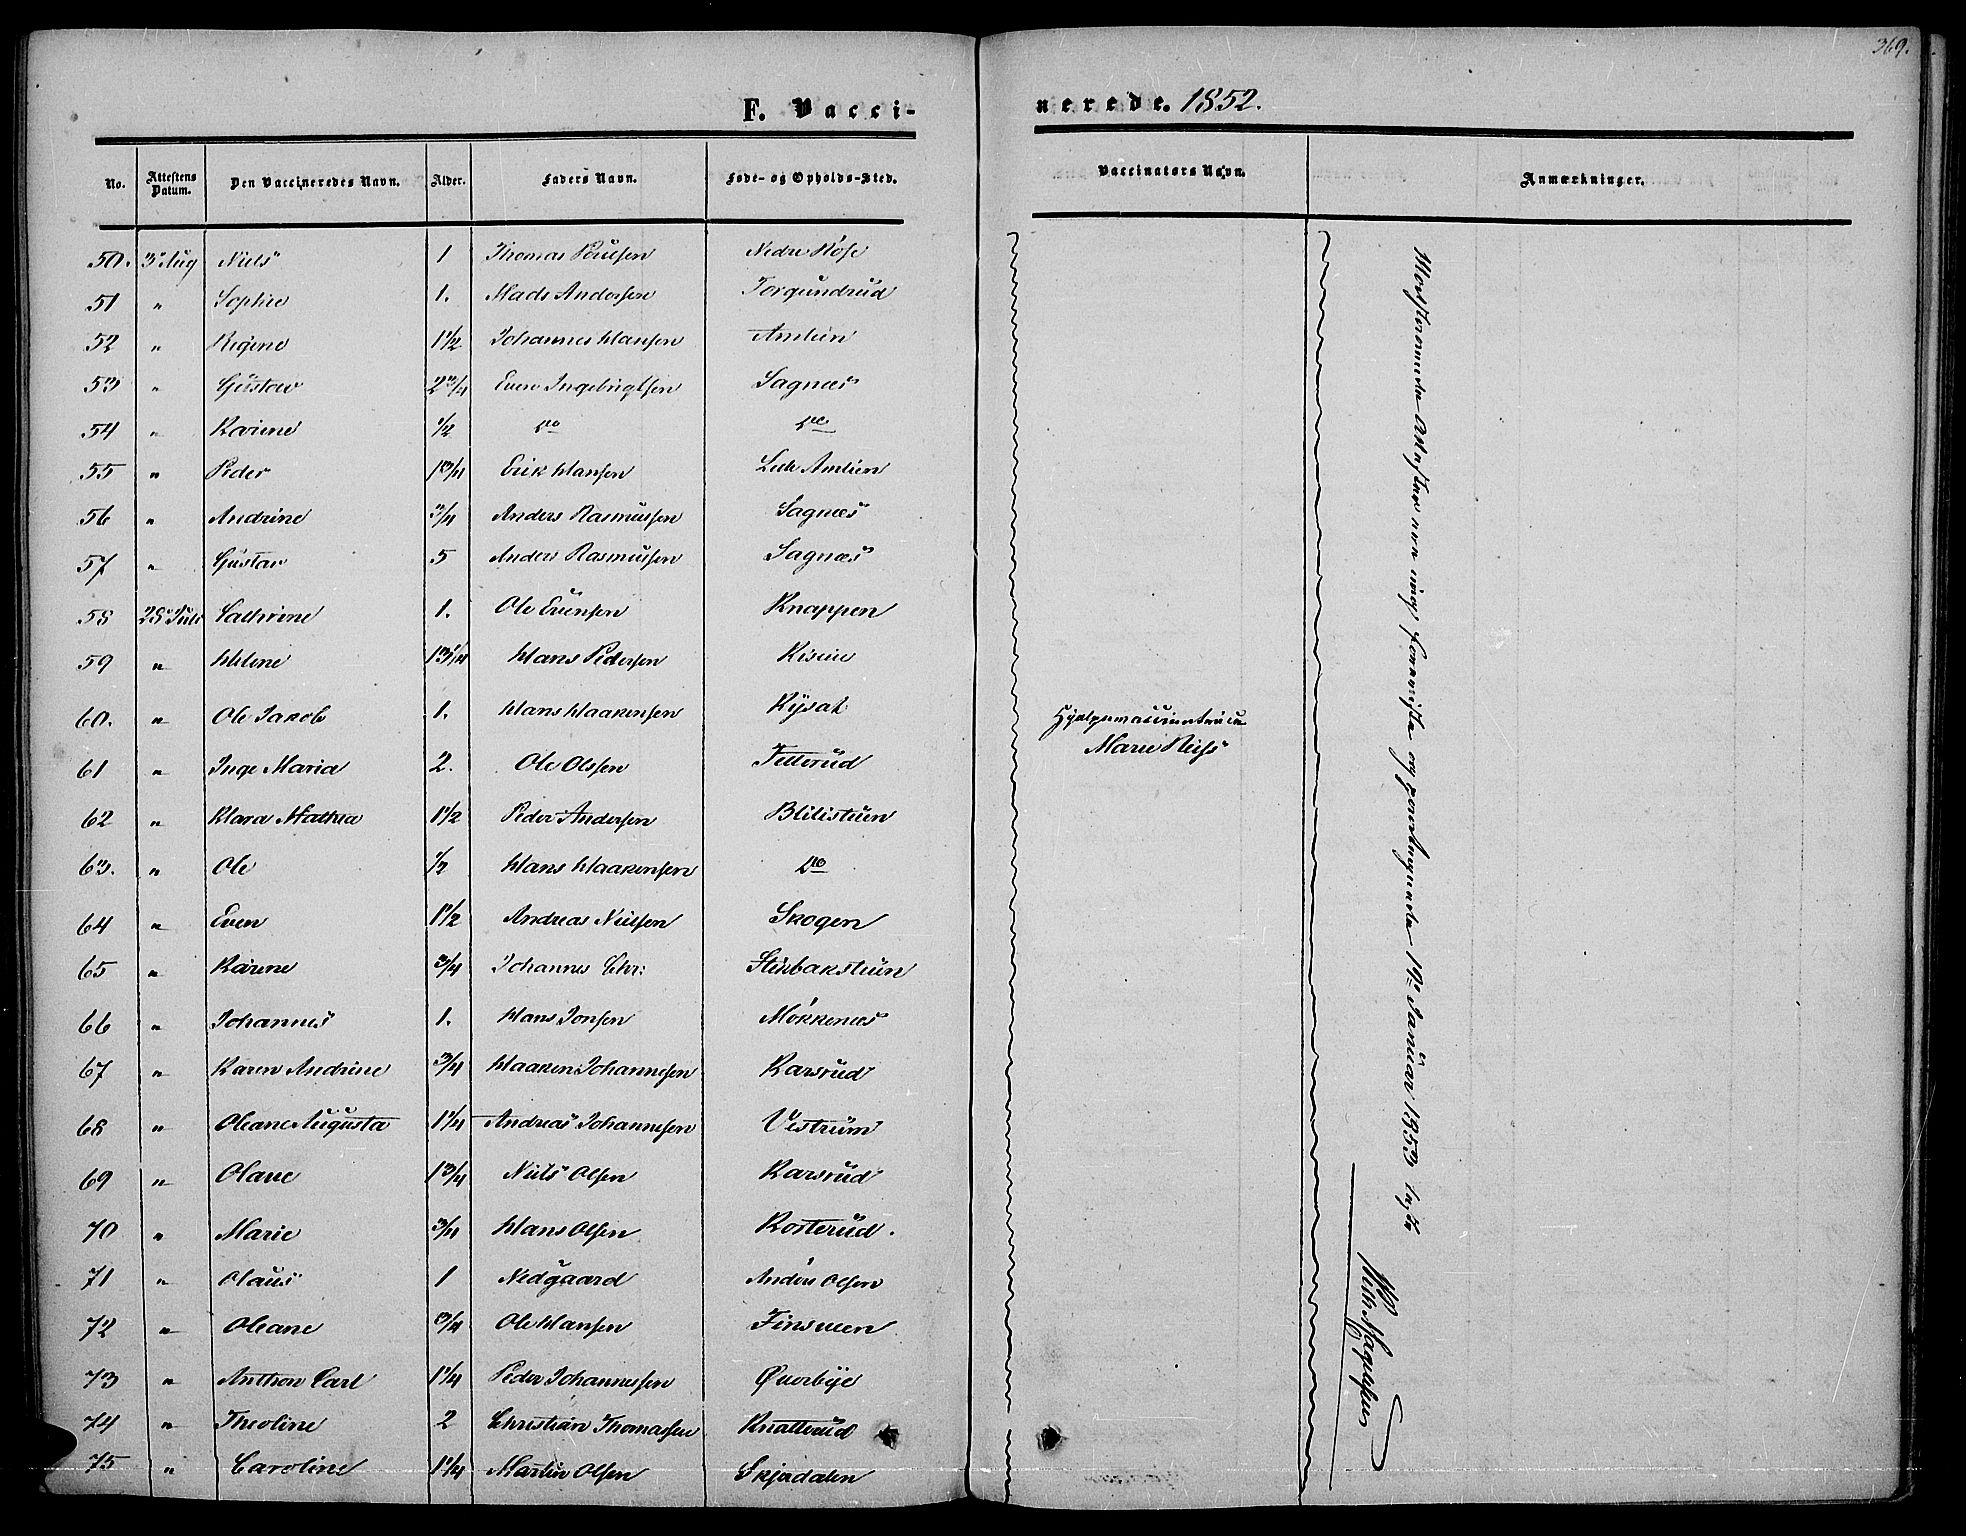 369.
F. Vacci-
nerede. 1852.
No. Attestens Datum. Den Vaccineredes Navn. Alder. Faders Navn. Føde- og Opholds-Sted. Vaccinatørs Navn. Anmærkninger.
50. 3 Aug Niels 1 Thomas Poulsen Nedre Kose
51 " Sophie 1. Mads Andersen Torgundrud
52 " Regine 1 1/2 Johannes Hansen Amlien
53 " Gustav 2 3/4 Even Ingebrigtsen Sagnæs
54 " Karine 1/2 do do
55 " Peder 1 3/4 Erik Hansen Amlien
56 " Andrine 3/4 Anders Rasmussen Sagnæs
57 " Gustav 5 Anders Rasmussen Sagnæs
58 28 Juli Cathrine 1. Ole Evensen Knappen
59 " Helene 1 3/4 Hans Pedersen
60. " Ole Jakob 1. Hans Haakensen
61 " Inge Maria 2. Ole Olssen
62 " Klara Mathea 1 1/2 Peder Andersen Blilistuen
63. " Ole 1/2 Hans Haakensen do
64 " Even 1 1/2 Andreas Nielsen Skogen
65 " Karene 3/4 Johannes Chr: Stenbakstuen
66 " Johannes 1. Hans Jonsen Mökkenæs
67 " Karen Andrine 3/4 Haaken Johannesen Karsrud
68 " Oleane Augusta 1 1/4 Andreas Johannesen Vestrum
69 " Olane 1 3/4 Niels Olsen Karsrud
70 " Marie 3/4 Hans Olsen Rosterud.
71 " Olaus 1 Nedgaard Anders Olsen
72 " Oleane 3/4 Ole Hansen Finsveen
73 " Anthon Carl 1 1/4 Peder Johannesen Qverbye
74 " Theoline 2 Christian Thomassen Knatterud
75 " Caroline 1 1/4 Martin Olsen Skjædalen
Hjælpevaccinatrice
Marie Reiss
Attester ere mig foreviste og 19de Januar 1853